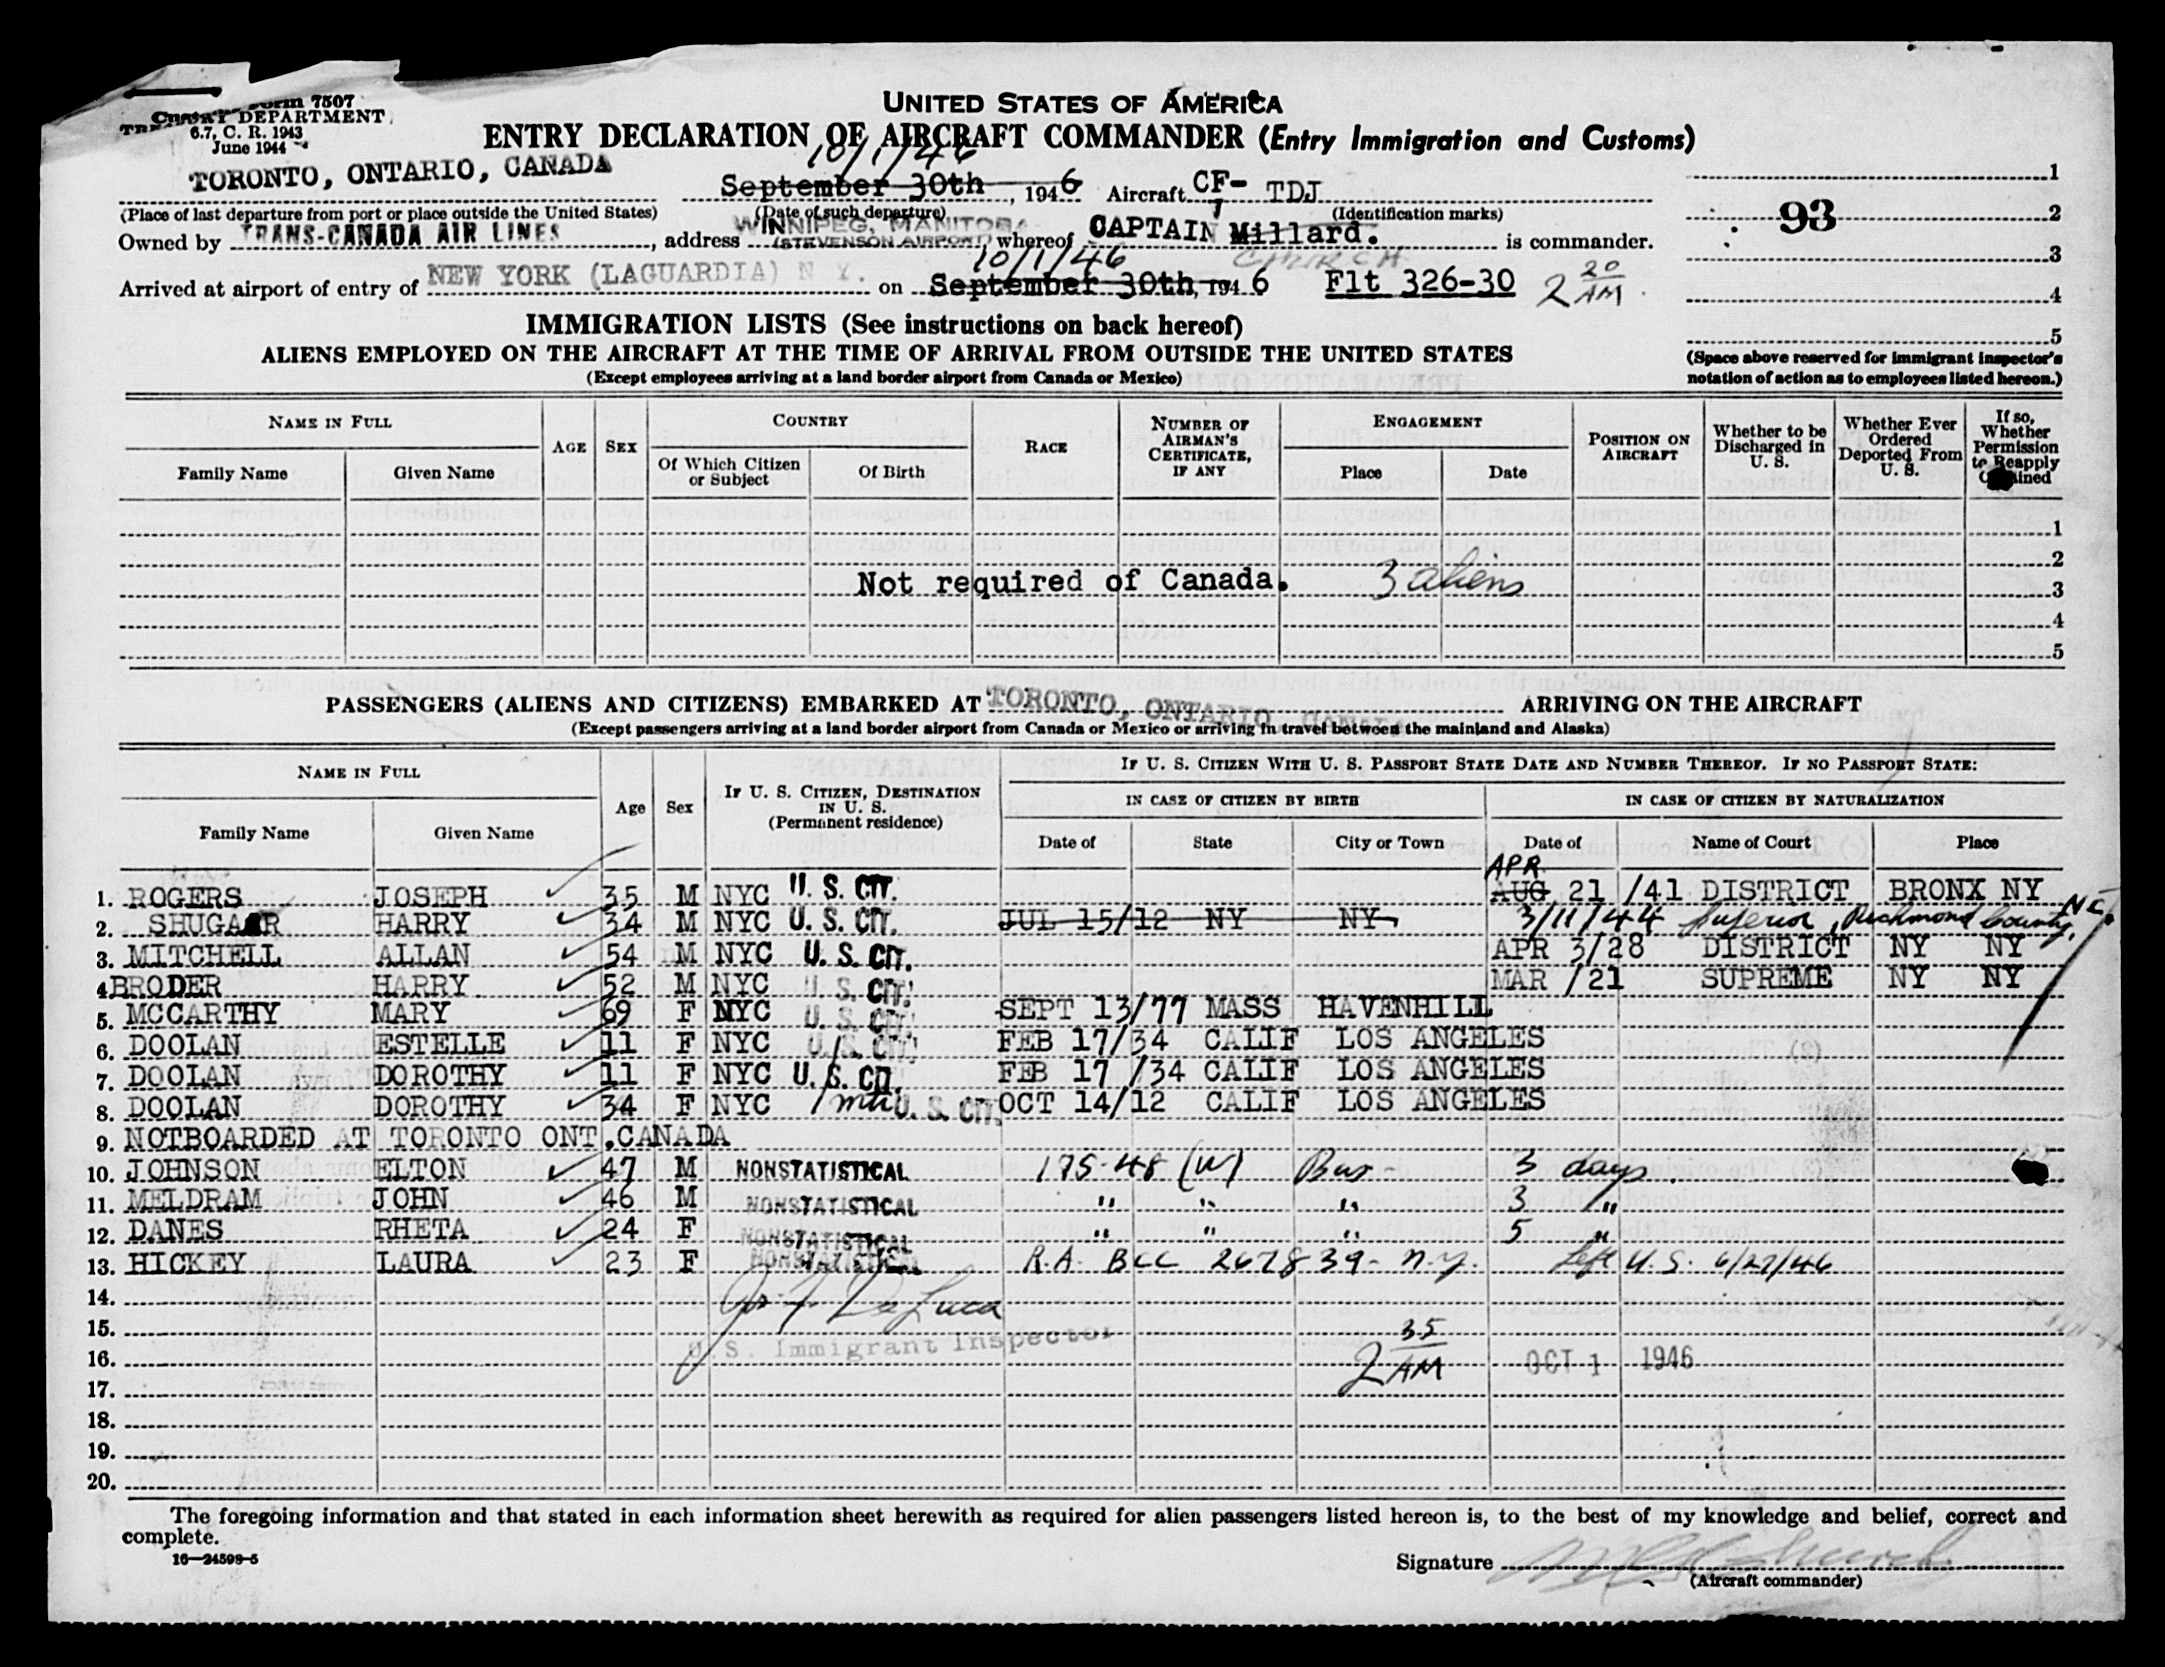 Form 7507
TREASURY DEPARTMENT
6.7, C. R. 1943
June 1944
UNITED STATES OF AMERICA
ENTRY DECLARATION OF AIRCRAFT COMMANDER (Entry Immigration and Customs)
TORONTO, ONTARIO, CANADA
10/1/46
September 30th, 1946 Aircraft CF-TDJ
(Place of last departure from port or place outside the United States) (Date of such departure) (Identification marks)
Owned by TRANS-CANADA AIR LINES, address WINNIPEG, MANITOBA (STEVENSON AIRPORT) whereof CAPTAIN Millard. is commander.
10/1/46 CHURCH
Arrived at airport of entry of NEW YORK (LAGUARDIA) N Y. on September 30th, 1946 Flt 326-30 2 20 AM
1
2
93
3
4
5
(Space above reserved for immigrant inspector's notation of action as to employees listed hereon.)
IMMIGRATION LISTS (See instructions on back hereof)
ALIENS EMPLOYED ON THE AIRCRAFT AT THE TIME OF ARRIVAL FROM OUTSIDE THE UNITED STATES
(Except employees arriving at a land border airport from Canada or Mexico)
NAME IN FULL AGE SEX COUNTRY RACE NUMBER OF AIRMAN'S CERTIFICATE, IF ANY ENGAGEMENT POSITION ON AIRCRAFT Whether to be Discharged in U. S. Whether Ever Ordered Deported From U. S. If so, Whether Permission to Reapply Obtained
Family Name Given Name Of Which Citizen or Subject Of Birth Place Date
1
2
Not required of Canada. 3 aliens 3
4
5
PASSENGERS (ALIENS AND CITIZENS) EMBARKED AT TORONTO, ONTARIO, CANADA ARRIVING ON THE AIRCRAFT
(Except passengers arriving at a land border airport from Canada or Mexico or arriving in travel between the mainland and Alaska)
NAME IN FULL Age Sex IF U. S. CITIZEN, DESTINATION IN U. S. (Permanent residence) IF U. S. CITIZEN WITH U. S. PASSPORT STATE DATE AND NUMBER THEREOF. IF NO PASSPORT STATE:
IN CASE OF CITIZEN BY BIRTH IN CASE OF CITIZEN BY NATURALIZATION
Family Name Given Name Date of State City or Town Date of Name of Court Place
APR
1. ROGERS JOSEPH 35 M NYC U. S. CIT. AUG 21 /41 DISTRICT BRONX NY
2. SHUGAR HARRY 34 M NYC U. S. CIT. JUL 15/12 NY NY 3/11/44 Superior, Richmond County, NC.
3. MITCHELL ALLAN 54 M NYC U. S. CIT. APR 3/28 DISTRICT NY NY
4. BRODER HARRY 52 M NYC U. S. CIT. MAR /21 SUPREME NY NY
5. MCCARTHY MARY 69 F NYC U. S. CIT. SEPT 13/77 MASS HAVENHILL
6. DOOLAN ESTELLE 11 F NYC U. S. CIT. FEB 17/34 CALIF LOS ANGELES
7. DOOLAN DOROTHY 11 F NYC U. S. CIT. FEB 17 /34 CALIF LOS ANGELES
8. DOOLAN DOROTHY 34 F NYC U. S. CIT. OCT 14/12 CALIF LOS ANGELES
9. NOTBOARDED AT TORONTO ONT.CANADA
10. JOHNSON ELTON 47 M NONSTATISTICAL 175-48 (W) Bus- 3 days
11. MELDRAM JOHN 46 M NONSTATISTICAL " " " 3 "
12. DANES RHETA 24 F NONSTATISTICAL " " " 5 "
13. HICKEY LAURA 23 F NONSTATISTICAL R.A. BCC 267839- N.Y. Left U.S. 6/27/46
14. Jos. F. DeLuca
15. U.S. Immigrant Inspector
16. 2 35 AM OCT 1 1946
17.
18.
19.
20.
The foregoing information and that stated in each information sheet herewith as required for alien passengers listed hereon is, to the best of my knowledge and belief, correct and
complete.
16—24598-5
Signature
(Aircraft commander)